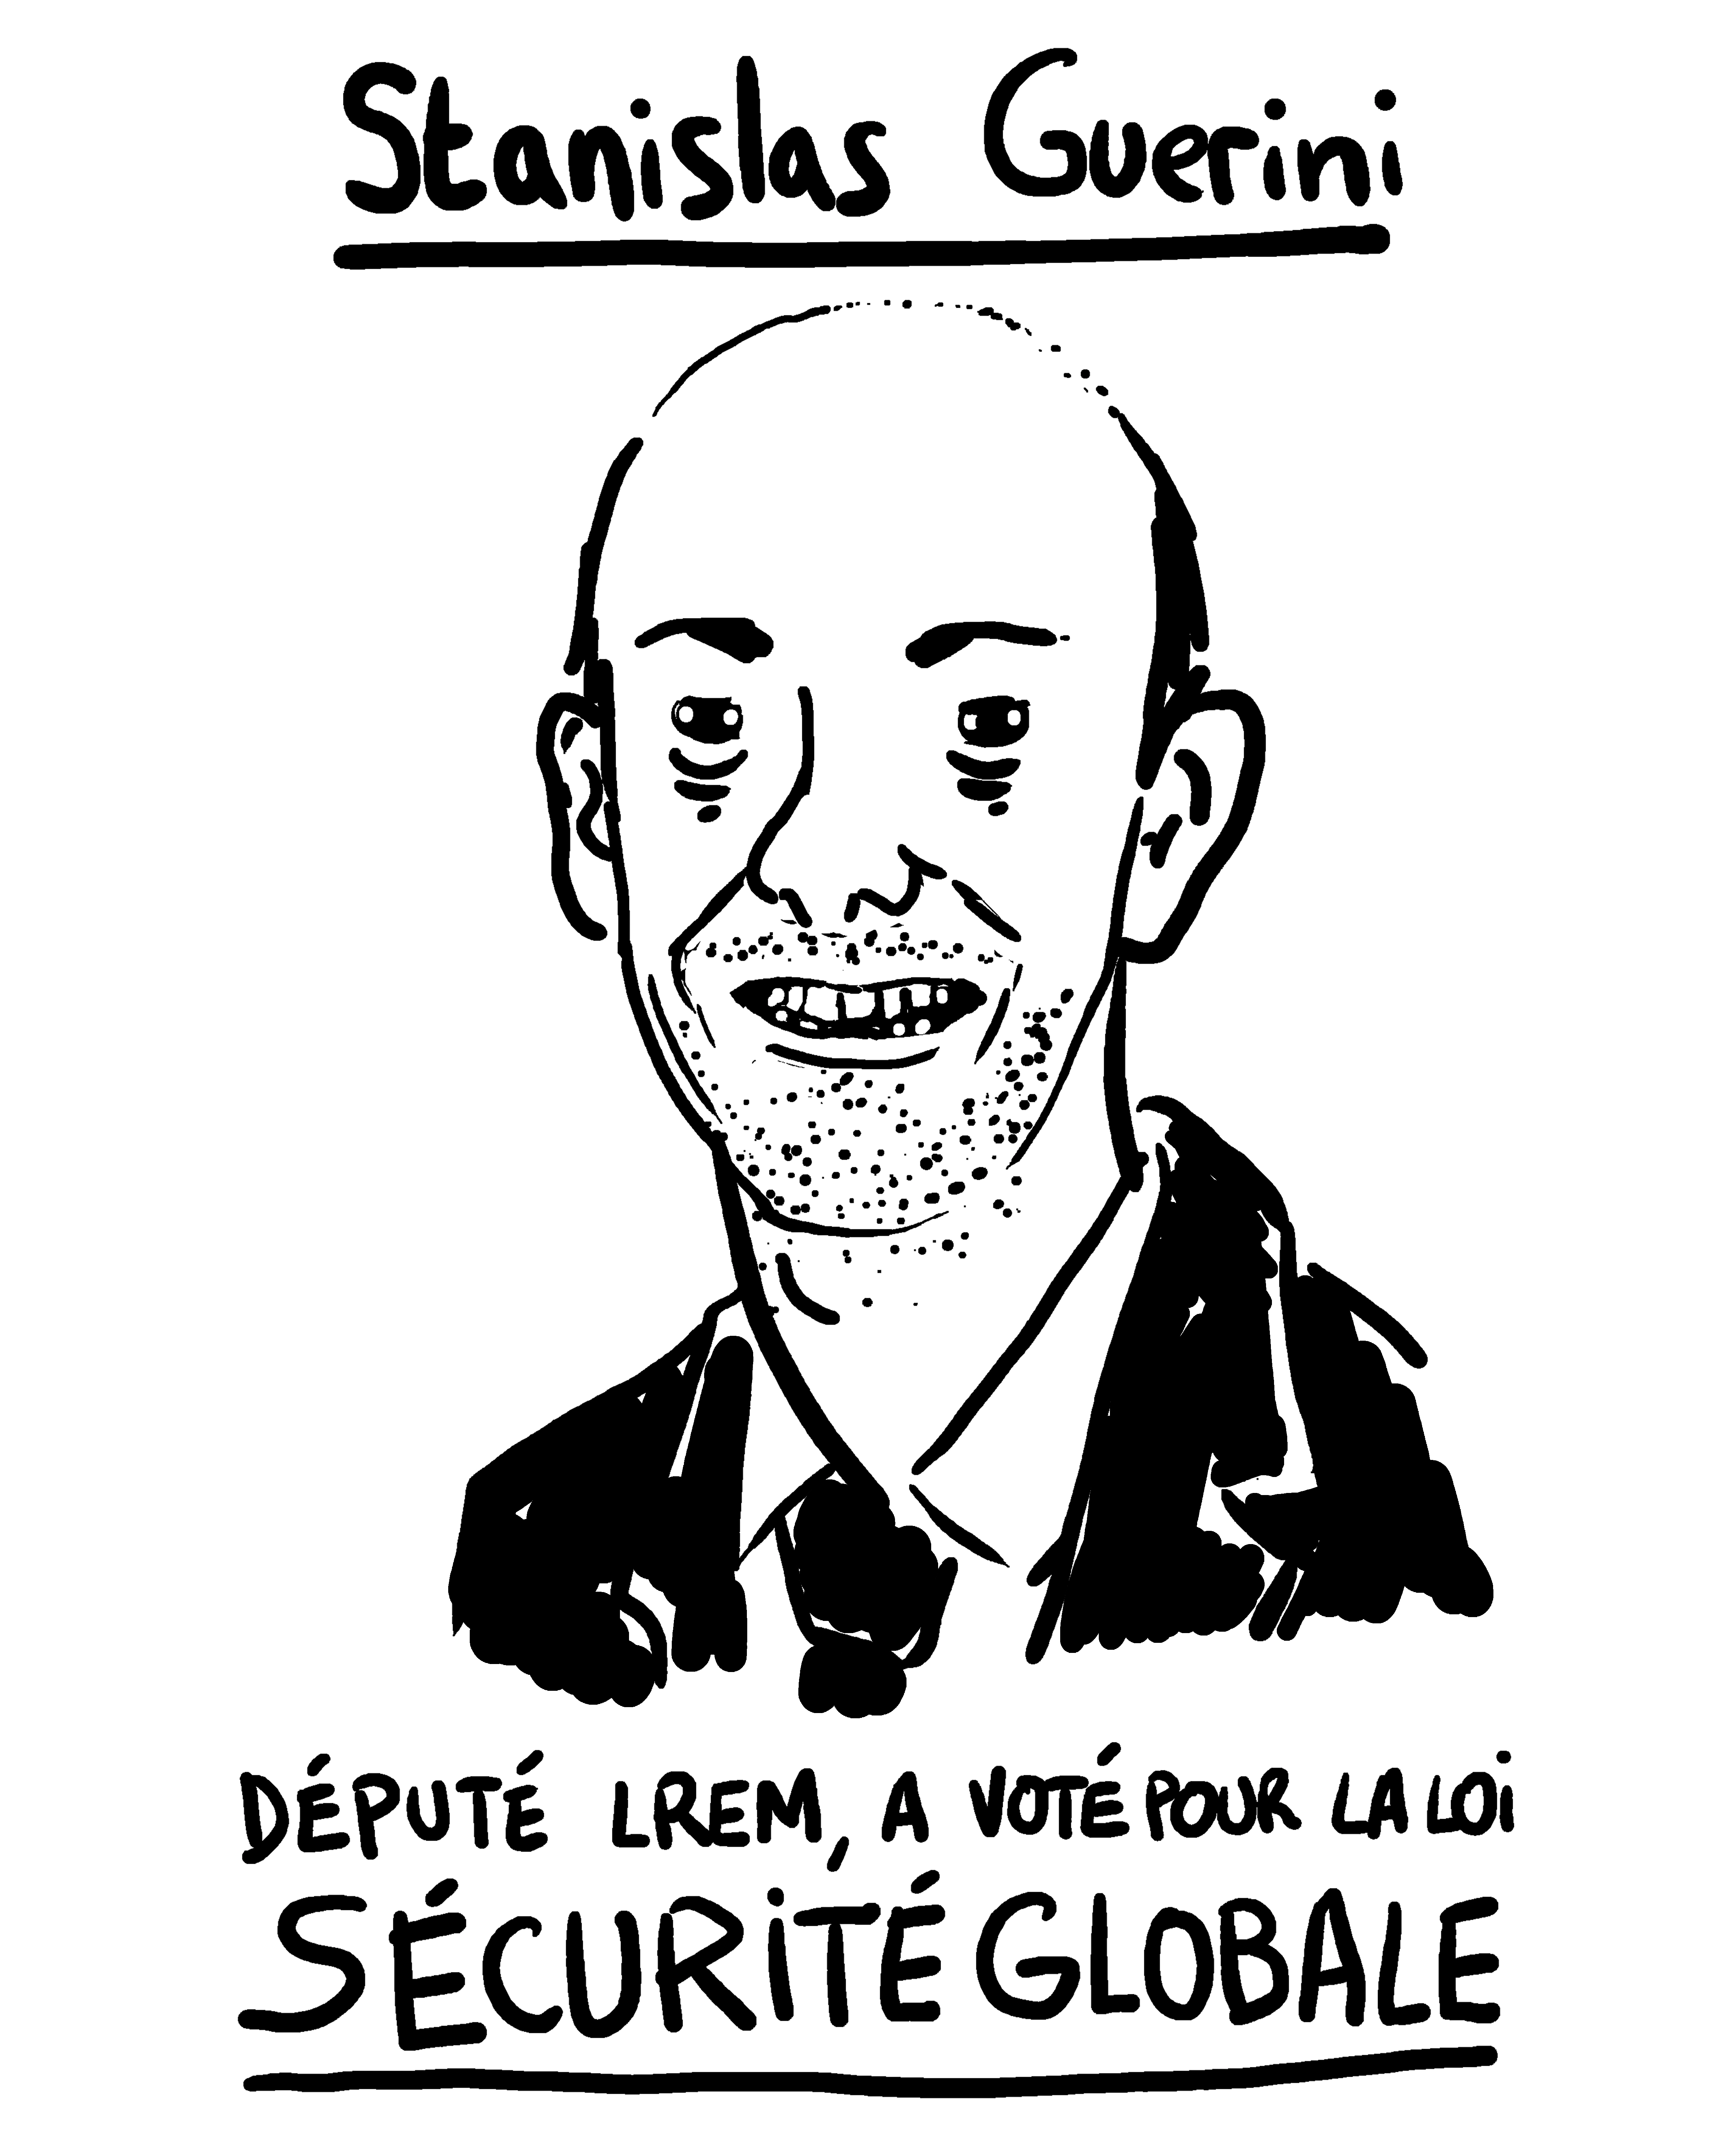 Stanislas Guerini
DÉPUTÉ LREM, A VOTÉ POUR LA LOI
SÉCURITÉ GLOBALE